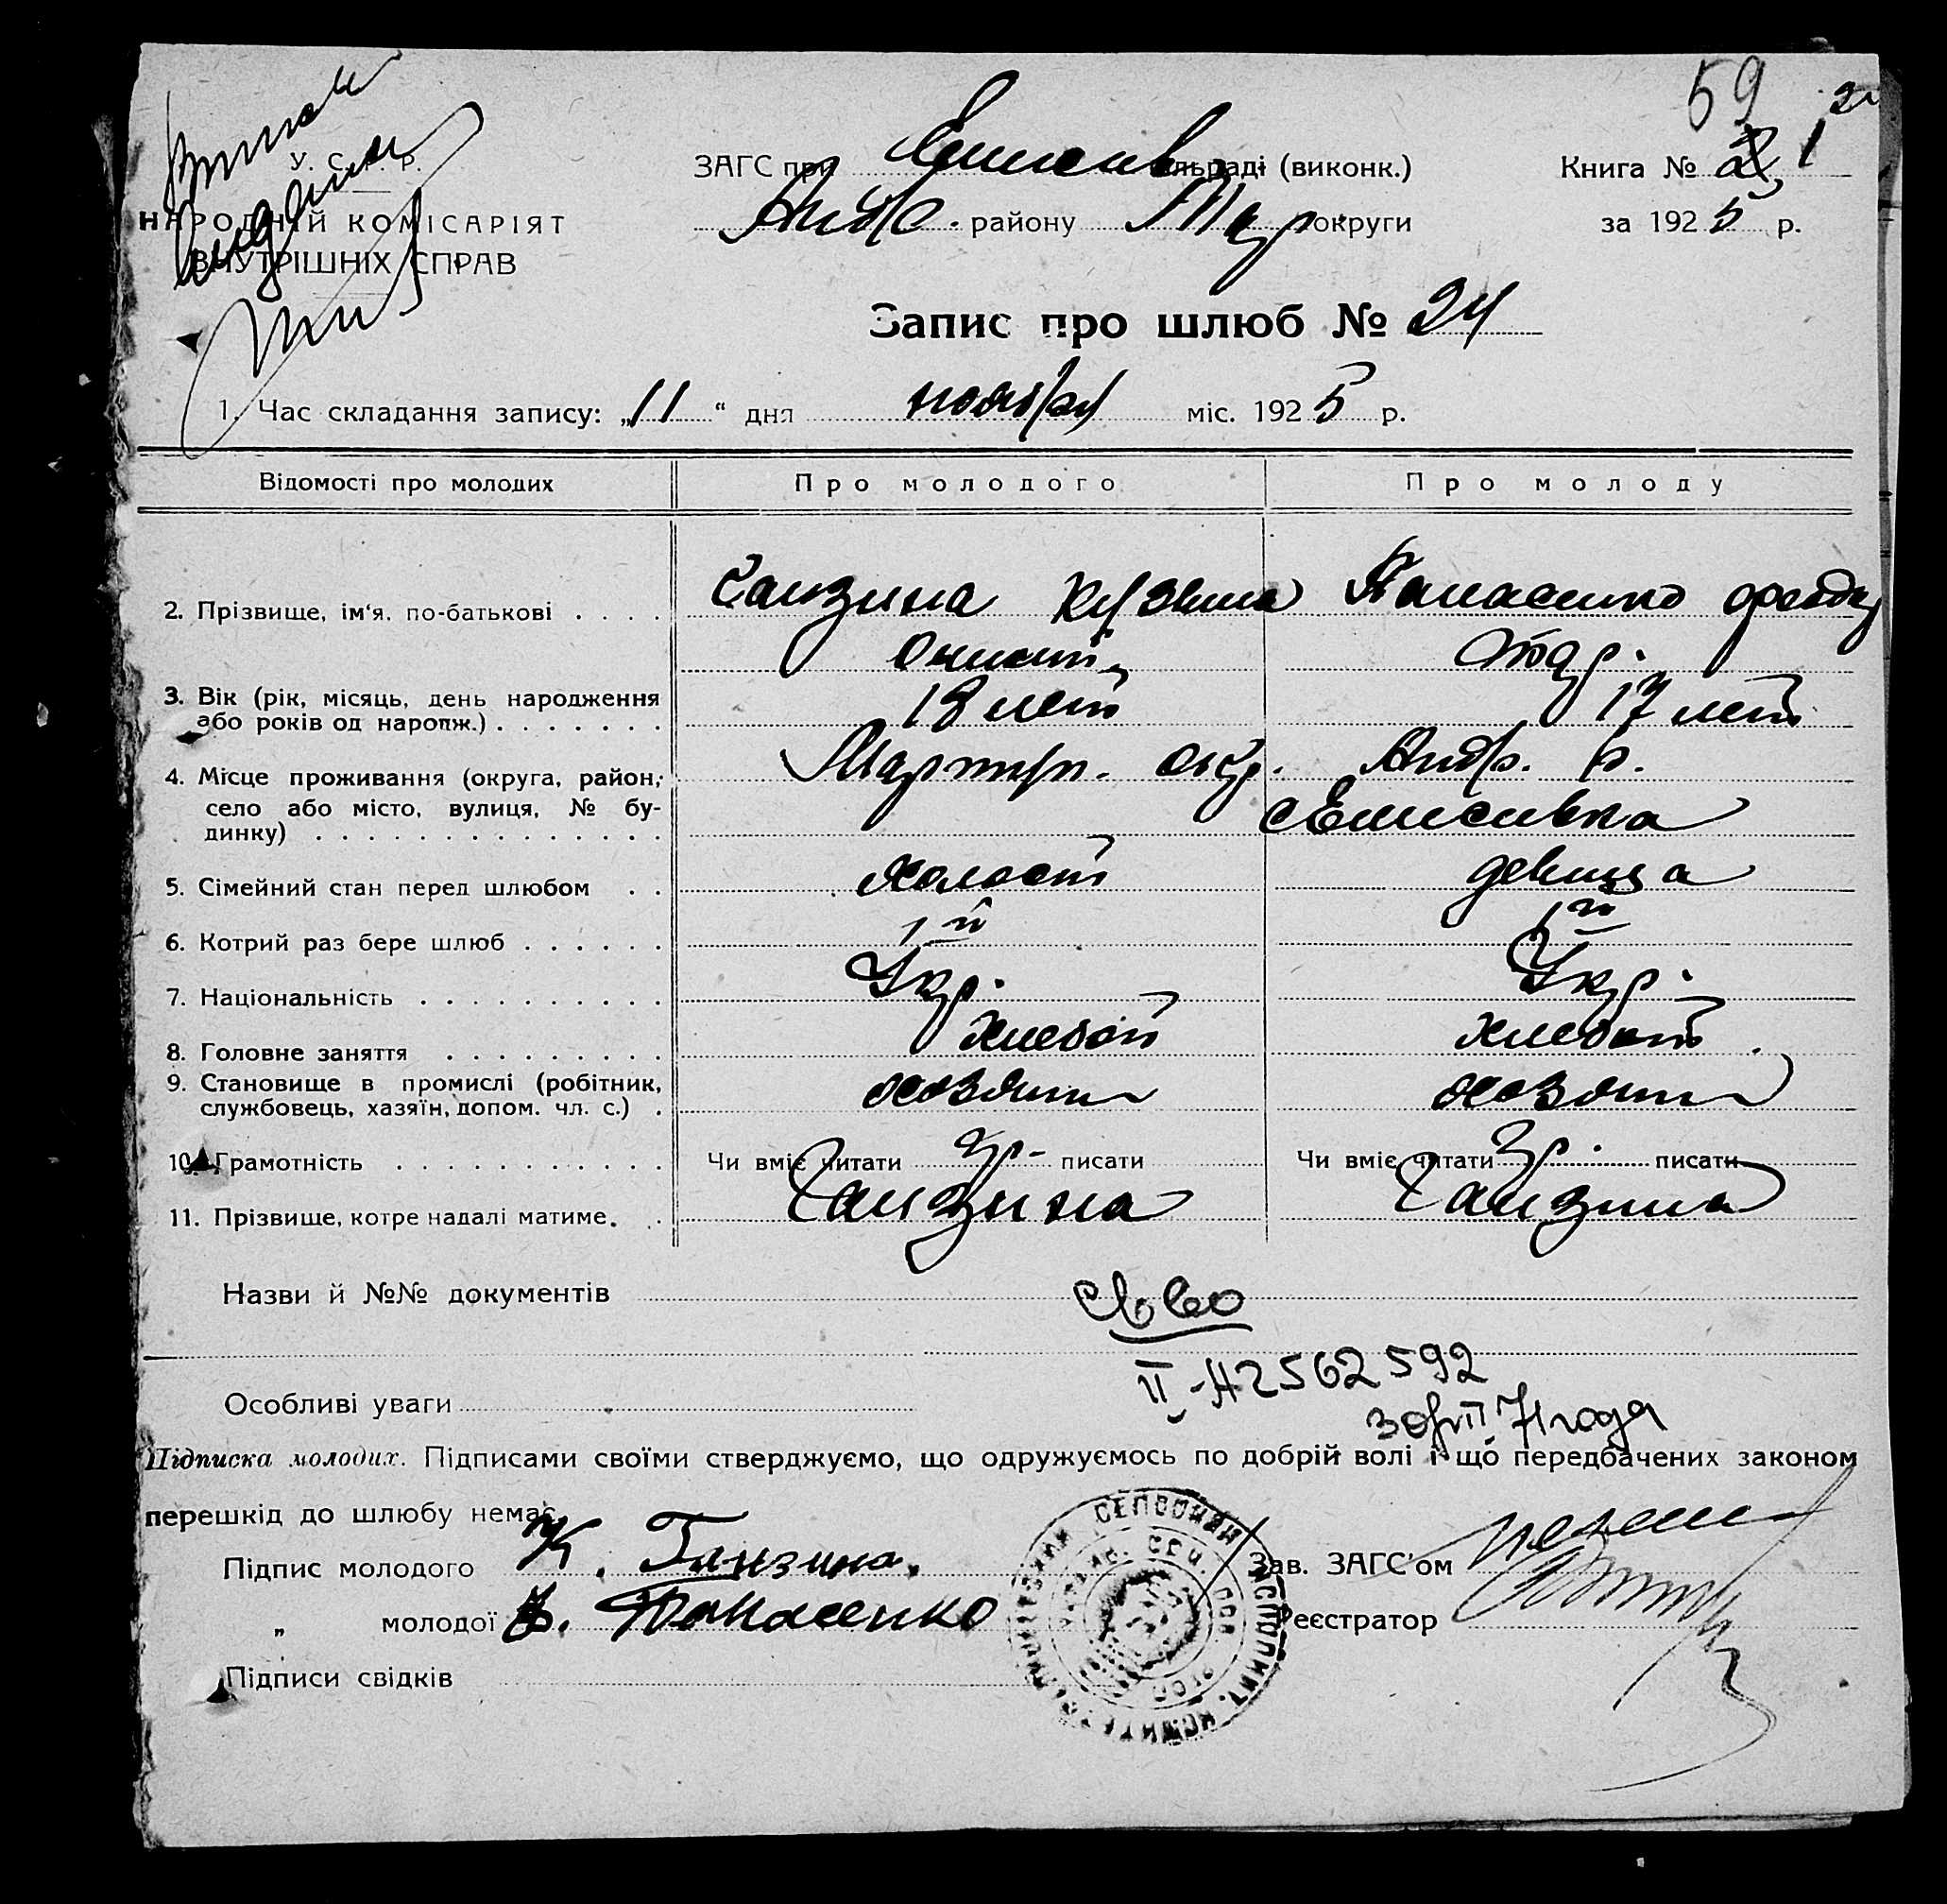 59
У. С. Р. Р.
НАРОДНІЙ КОМІСАРІЯТ
ВНУТРІШНІХ СПРАВ
ЗАГС при Елисеив сільраді (виконк.)
Андр. району Мар округи
Книга № 1
за 1925 р.
Запис про шлюб № 24
1. Час складання запису: „11“ дня ноября міс. 1925 р.
Відомості про молодих Про молодого Про молоду
2. Прізвище, ім'я, по-батькові . . . . Ганзина Кузьма Панасенко
3. Вік (рік, місяць, день народження
або років од народж.) . . . . . . . 18 лет 17 лет
4. Місце проживання (округа, район,
село або місто, вулиця, № бу-
динку) . . . . . . . . . . . . . . Мариуп. окр. Андр. р.
с Елисеивка
5. Сімейний стан перед шлюбом . . холост девица
6. Котрий раз бере шлюб . . . . . . 1й 1й
7. Національність . . . . . . . . . . Укр. Укр.
8. Головне заняття . . . . . . . . . хлебоп хлебоп.
9. Становище в промислі (робітник,
службовець, хазяїн, допом. чл. с.) . хозяин хозяин
10. Грамотність . . . . . . . . . . . Чи вміє читати гр- писати Чи вміє читати гр. писати
11. Прізвище, котре надалі матиме. . . Ганзина Ганзина
Назви й №№ документів
св во
II-А2562592
Особливі уваги
71 года
Підписка молодих. Підписами своїми стверджуємо, що одружуємось по добрій волі і що передбачених законом
перешкід до шлюбу немає.
Підпис молодого К. Ганзина.
Зав. ЗАГС'ом
„ молодої Панасенко
Реєстратор
Підписи свідків